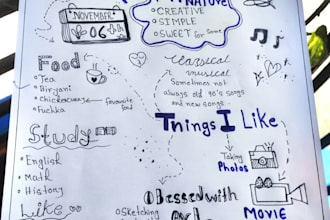 NATURE
CREATIVE
SIMPLE
SWEET for some
NOVEMBER
06
Food
Tea
Biryani
Chicken
Fuchka
favourite food
classical
musical
Sometimes not
always old 90's songs
and new songs
Things I Like
Study
English
Math
History
Taking
Photos
Like
Obessed with
Sketching
MOVIE